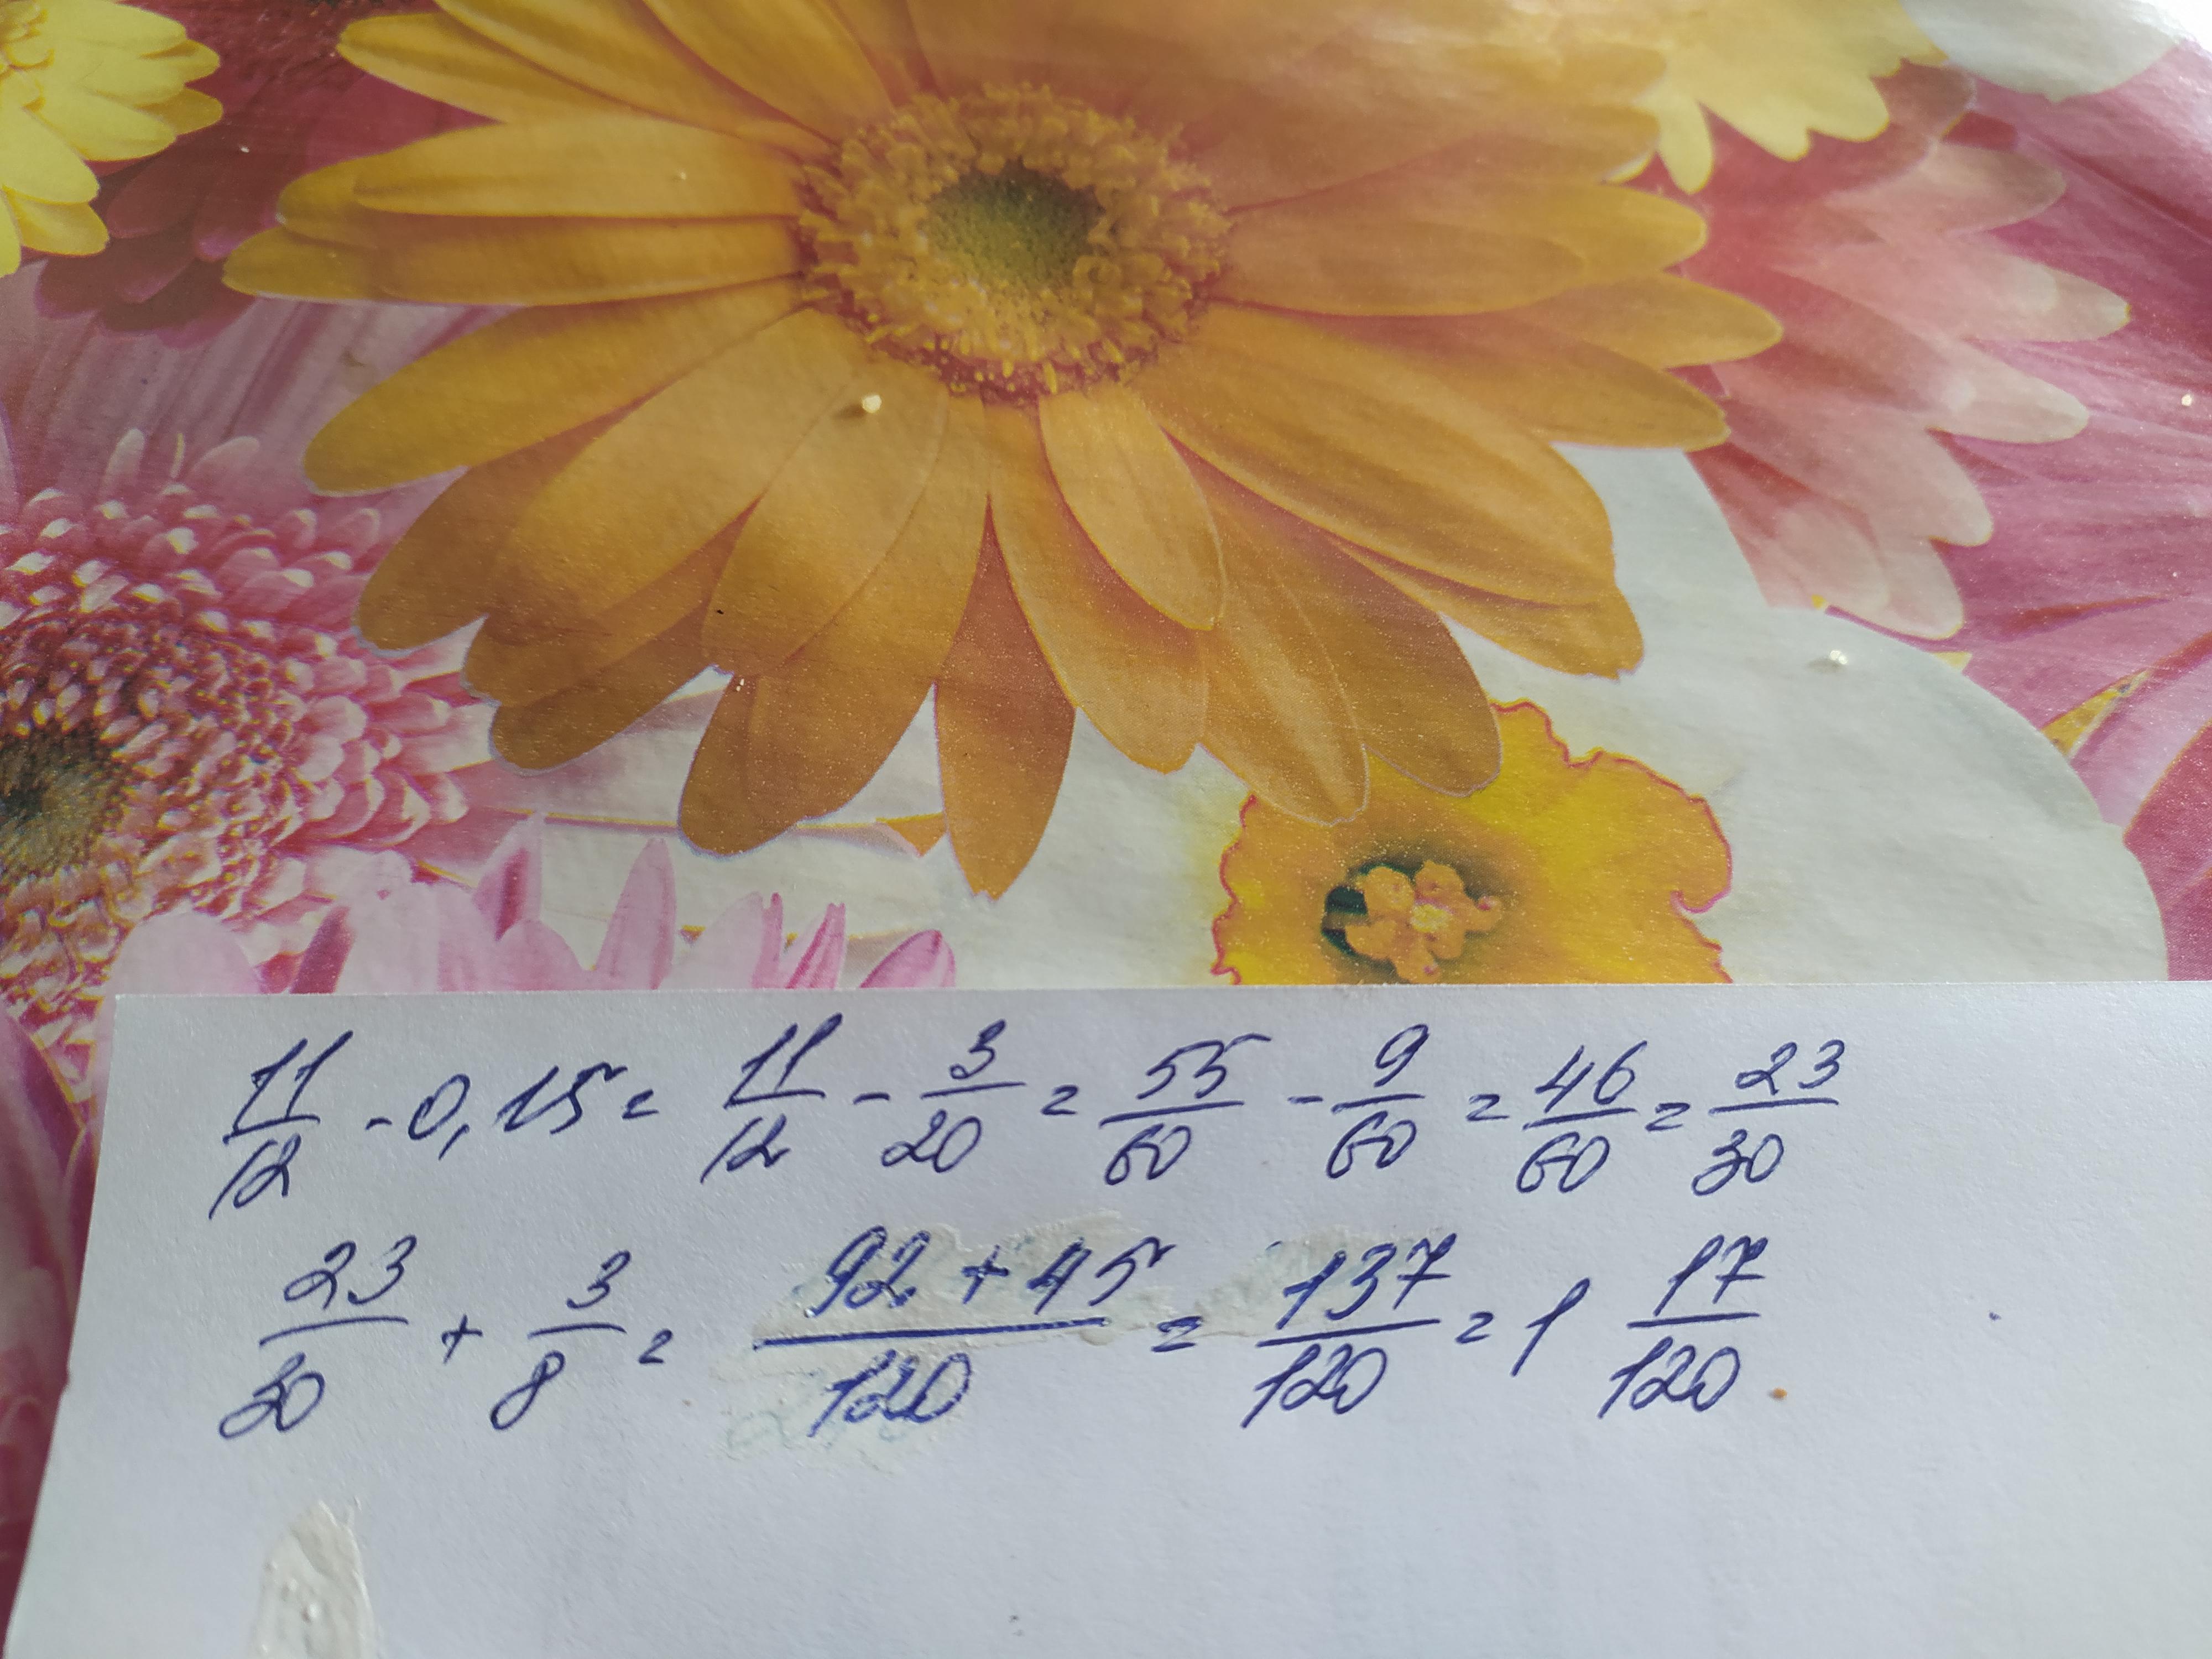 11/12 - 0,15 = 11/12 - 3/20 = 55/60 - 9/60 = 46/60 = 23/30
23/30 + 3/8 = 92 + 45/120 = 137/120 = 1 17/120